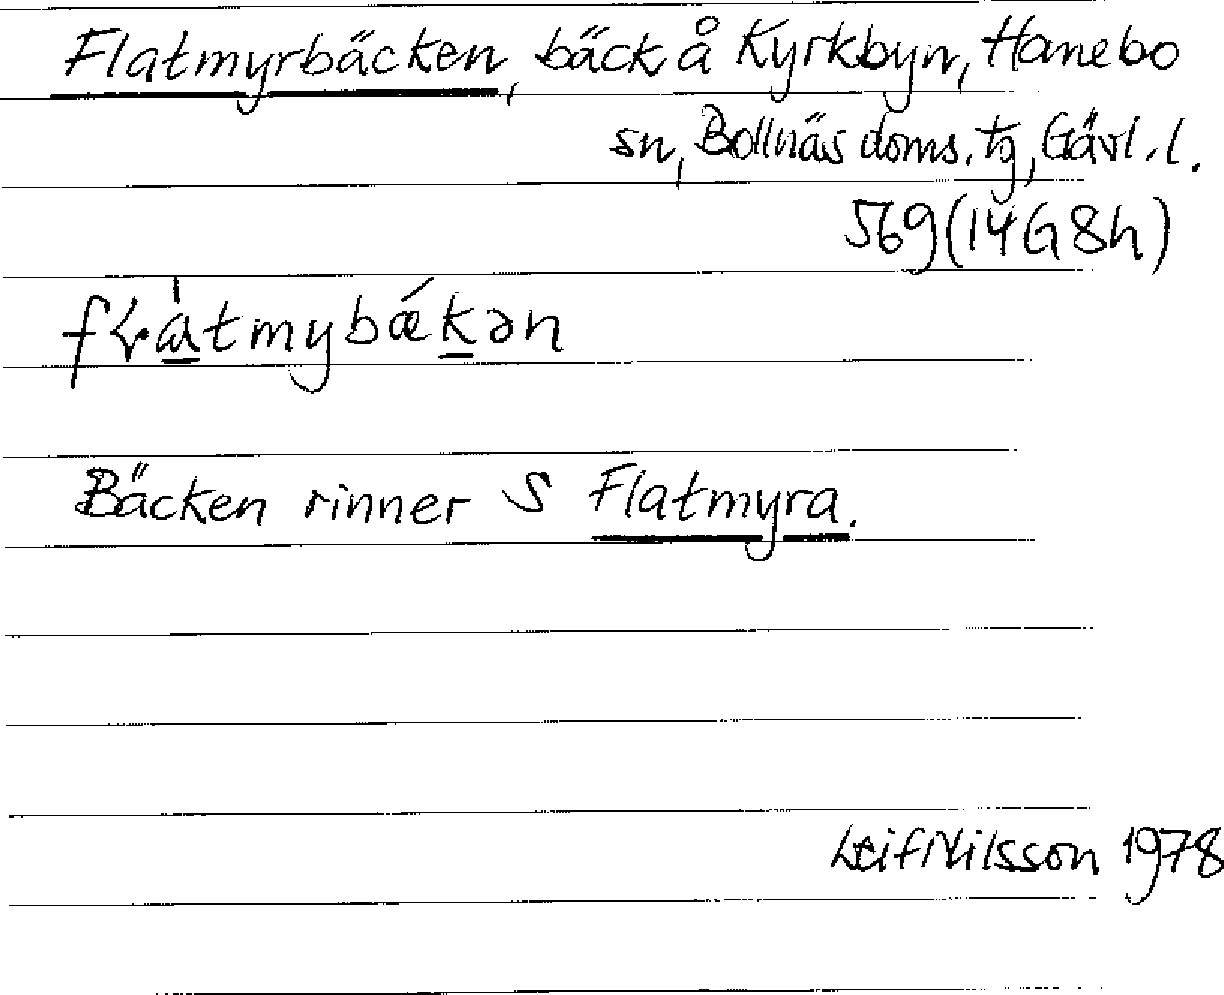 Flatmyrbäcken, bäck å Kyrkbyn, Hanebo
sn, Bollnäs doms. tg, Gävl. l.
569 (14G8h)
fɽàtmybǽkən
Bäcken rinner S Flatmyra.
Leif Nilsson 1978